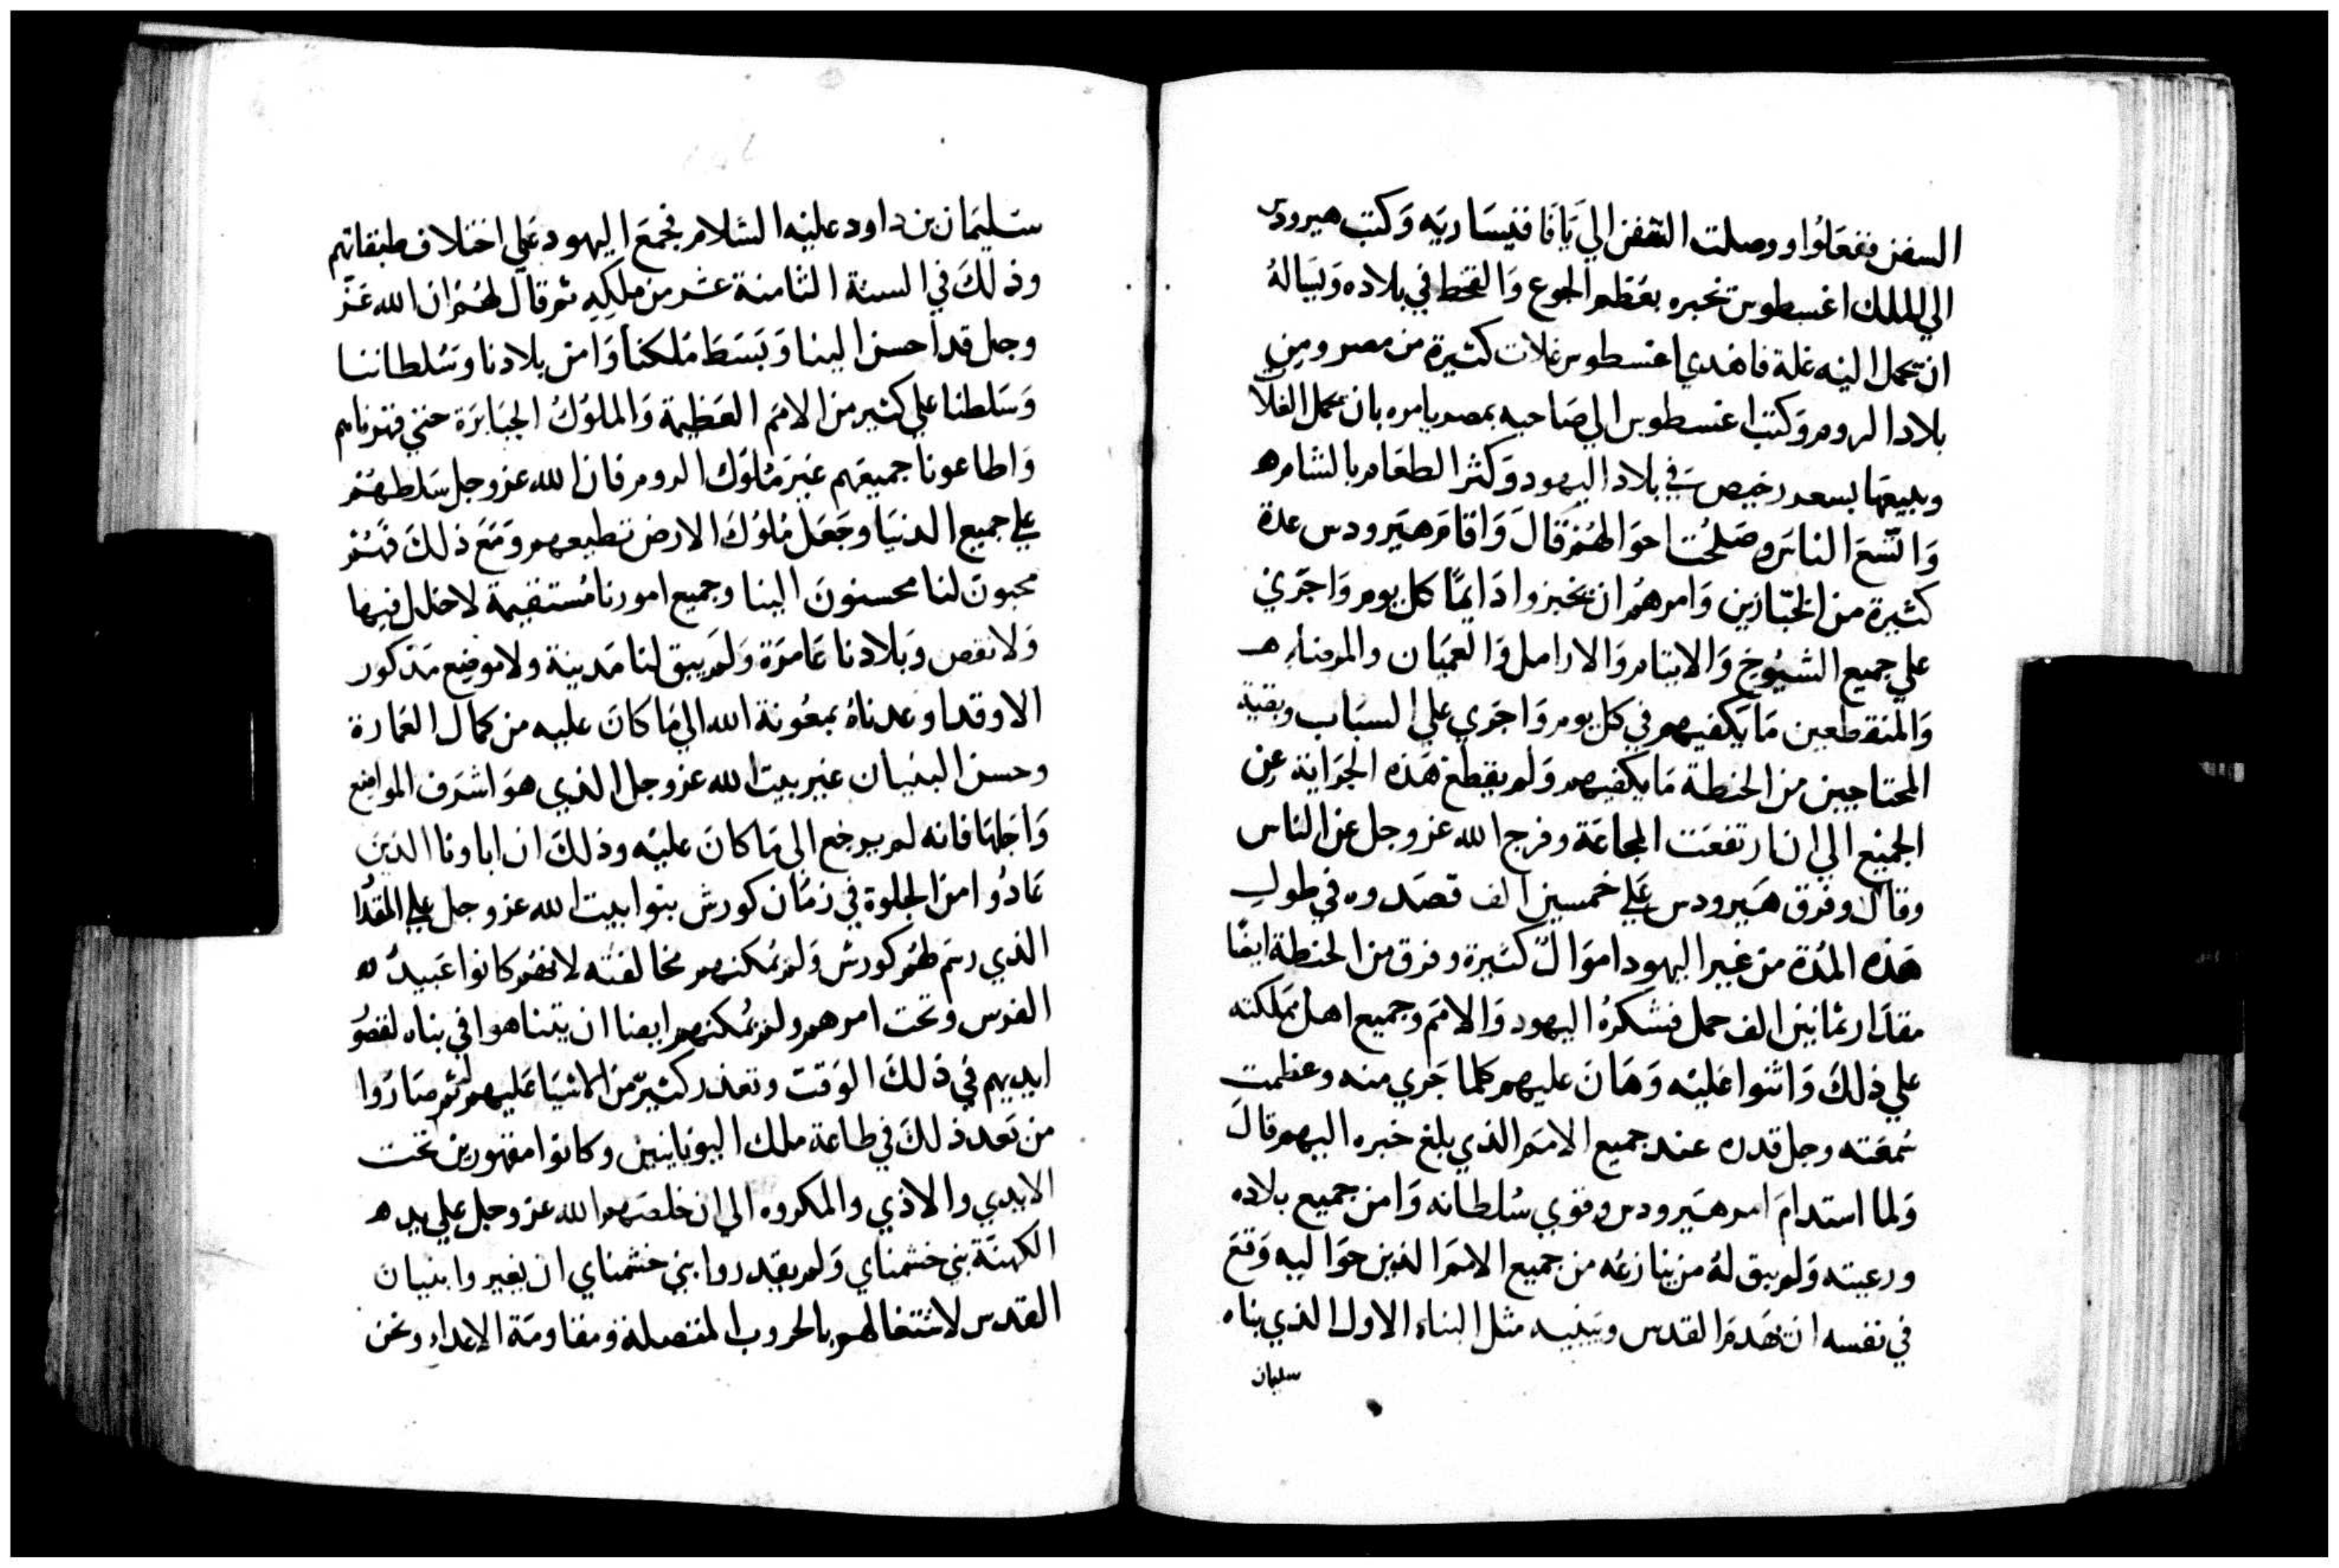 السفن ففعلوا ووصلت السفن الي يافا فقيساريه وكتب هيرودس
الي الملك اغسطوس تخبره بعظم الجوع والقحط في بلاده ويساله
ان يحمل اليه غلة فاهدي اغسطوس غلات كثيرة من مصر ومن
بلاد الروم وكتب اغسطوس الي صاحبه بمصر يامره بان يحمل الغلات
ويبيعها بسعر رخيص في بلاد اليهود وكثر الطعام بالشام
واتسع الناس وصلحت احوالهم قال واقام هيرودس عدة
كثيرة من الخبازين وامرهم ان يخبزوا دايمًا كل يوم واجري
علي جميع الشيوخ والايتام والارامل والعميان والمرضاء
والمنقطعين ما يكفيهم في كل يوم واجري علي السباب وبقية
المحتاجين من الحنطة ما يكفيهم ولم يقطع هذه الجراية عن
الجميع الي ان ارتفعت المجاعة وفرج الله عز وجل عن الناس
وقال وفرق هيرودس علي خمسين الف قصدوه في طول
هذه المدة من غير اليهود اموالً كثيرة وفرق من الحنطة ايضًا
مقدار ثمانين الف حمل فشكره اليهود والامم وجميع اهل مملكته
علي ذلك واثنوا عليه وهان عليهم كلما جري منه وعظمت
سمعته وجل قدره عند جميع الامم الذي بلغ خبره اليهم قال
ولما استدام امر هيرودس وقوي سلطانه وامن جميع بلاده
ورعيته ولم يبق له من ينازعه من جميع الامم الذين حواليه وقع
في نفسه ان يهدم القدس ويبنيه مثل البناء الاول الذي بناه
سليمان
سليمان بن داود عليه السلام فجمع اليهود علي اختلاف طبقاتهم
وذلك في السنة الثامنة عشر من ملكه ثم قال لهم ان الله عز
وجل قد احسن الينا وبسط ملكنا وامن بلادنا وسلطاننا
وسلطنا علي كثير من الامم العظيمة والملوك الجبابرة حتي قهرناهم
واطاعونا جميعهم غير ملوك الروم فان الله عز وجل سلطهم
علي جميع الدنيا وجعل ملوك الارض تطيعهم ومع ذلك فهم
محبون لنا محسنون الينا وجميع امورنا مستقيمة لا خلل فيها
ولا نقص وبلادنا عامرة ولم يبق لنا مدينة ولا موضع مذكور
الا وقد اوعدناه بمعونة الله الي ما كان عليه من كمال العمارة
وحسن البنيان غير بيت الله عز وجل الذي هو اشرف المواضع
واجلها فانه لم يرجع الي ما كان عليه وذلك ان اباونا الذين
عادوا من الجلوة في زمان كورش بنوا بيت الله عز وجل علي المقدا
الذي رسم لهم كورش ولم يمكنهم مخالفته لانهم كانوا عبيدً له
الفرس وتحت امرهم ولم يمكنهم ايضا ان يتناهوا في بناه لقصو
ايديهم في ذلك الوقت وتعذر كثيرً من الاشيا عليهم ثم صاروا
من بعد ذلك في طاعة ملك اليونانيين وكانوا مقهورين تحت
الايدي والاذي والمكروه الي ان خلصهم الله عز وجل علي يد
الكهنة بني خشمناي ولم يقدروا بني خشمناي ان يغيروا بنيان
القدس لاشتغالهم بالحروب المتصلة ومقاومة الاعداء ونحن